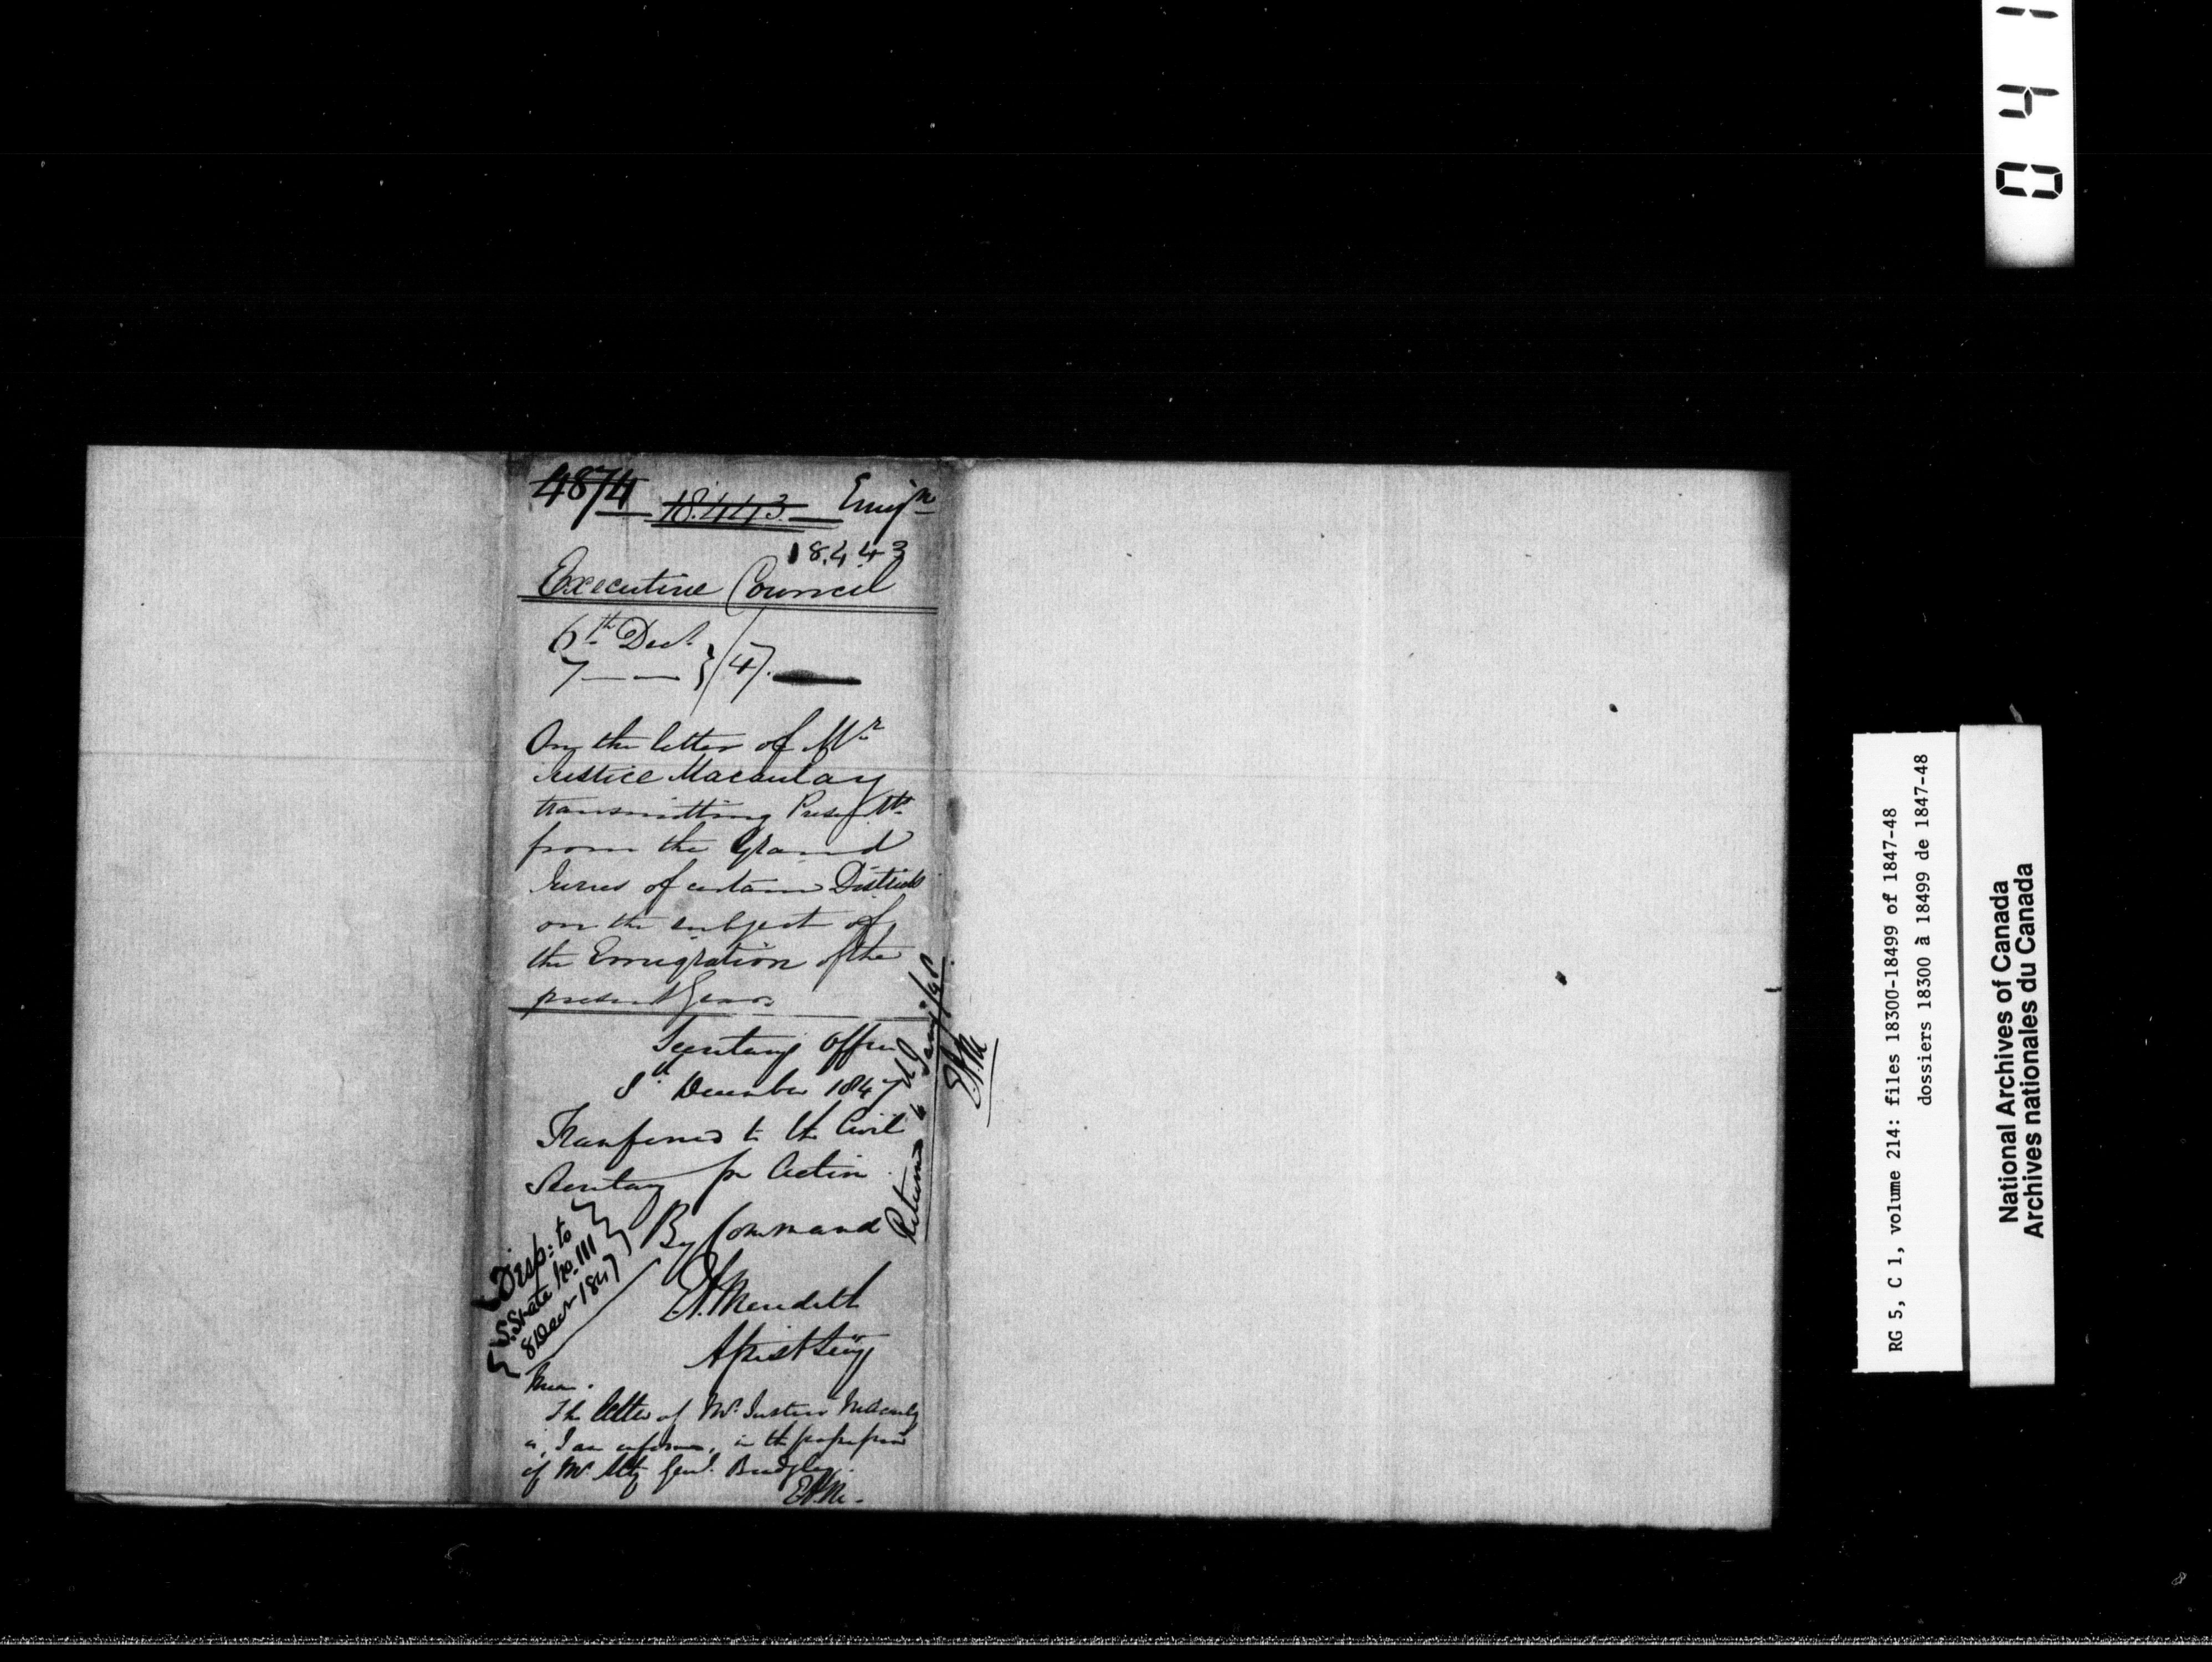 4874 18.443 Emign
18.443
Executive Council
6th Decr
7 — — } /47.
On the letter of Mr
Justice Macaulay
transmitting Presentts
from the Grand
Juries of certain Districts
on the subject of
the Emigration of the
present year
Secretary's Office
8th December 1847
Transferred to the Civil
Secretary for Action
By Command
E.A. Meredith
Asst Secy
Disp: to
S. State No. 111
8 Decr 1847
Returned Jany/48
E.A.M.
Mem.
The letter of Mr Justice McCauly
is, I am informed, in the possession
of Mr Atty Genl. Badgley.
E.A.M.
0 4 1
RG 5, C 1, volume 214: files 18300-18499 of 1847-48
dossiers 18300 à 18499 de 1847-48
National Archives of Canada
Archives nationales du Canada